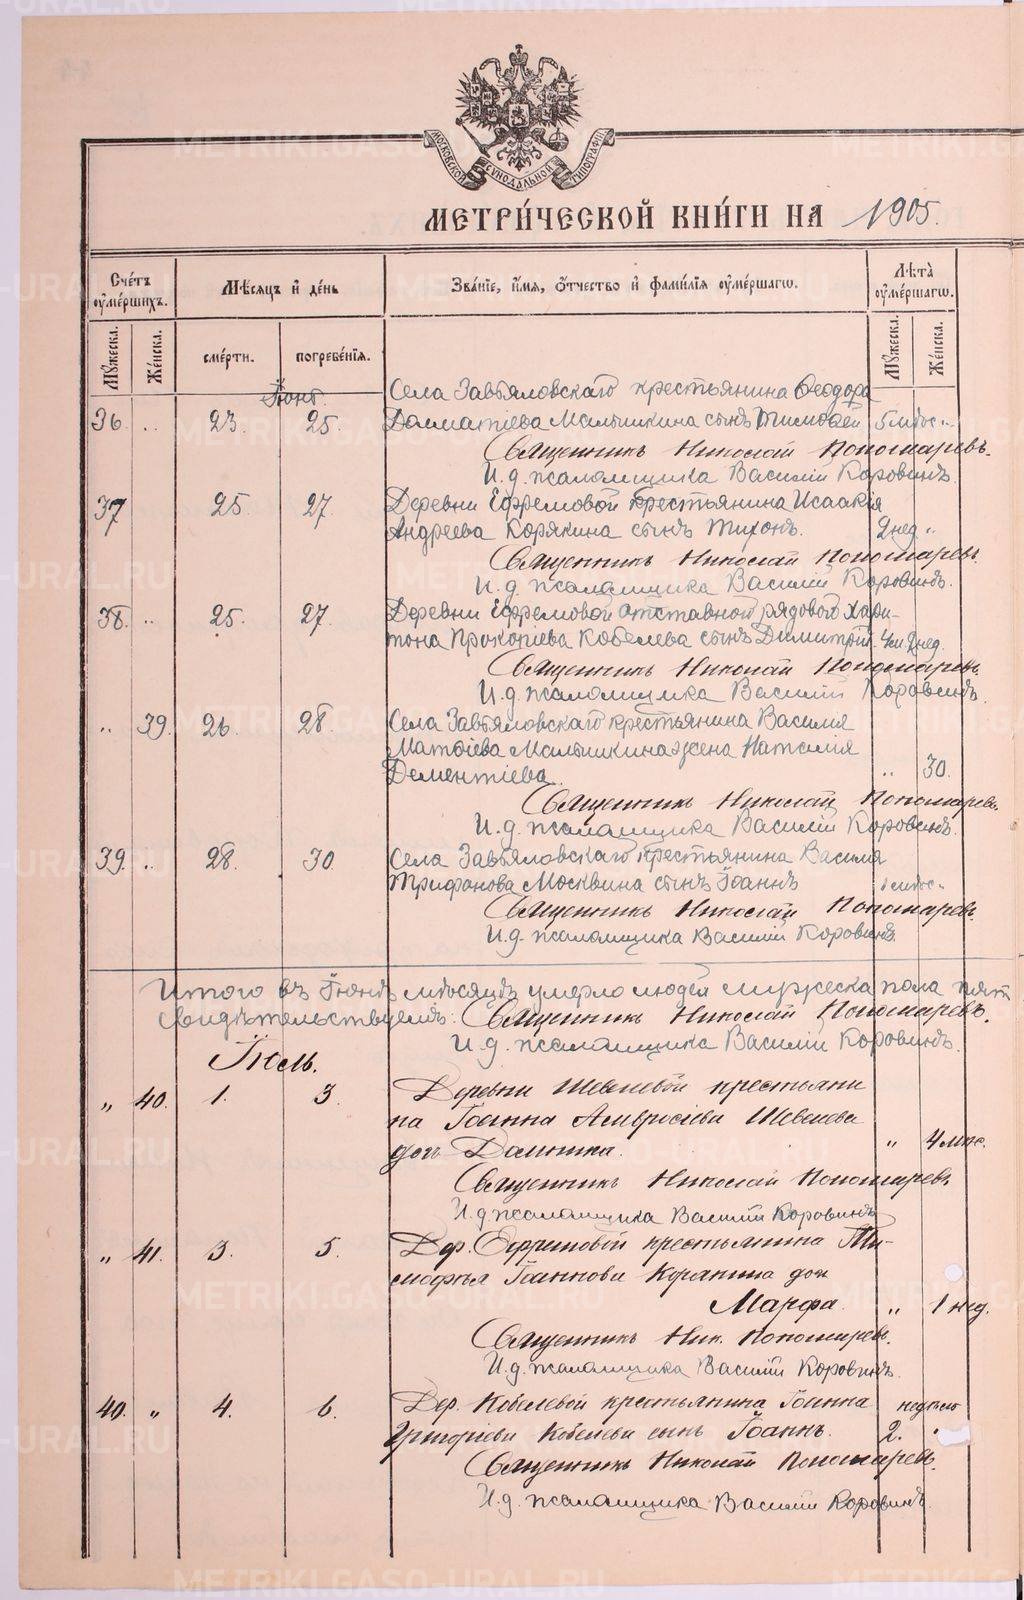 МОСКОВСКОЙ СѴНОДАЛЬНОЙ ТИПОГРАФІИ
МЕТРИ́ЧЕСКОЙ КНИ́ГИ НА 1905.
Сче́тъ ᲂу҆ме́ршихъ.
Мѣ́сяцъ и҆ де́нь
Зва́нїе, и҆́мя, ѻ҆́тчество и҆ фами́лїя ᲂу҆ме́ршагѡ.
Лѣта̀ ᲂу҆ме́ршагѡ.
Мꙋ́жеска. Же́нска. сме́рти. погребе́нїя. Мꙋ́жеска. Же́нска.
Іюнь. Села Завьяловскаго крестьянина Ѳеодора
36. .. 23. 25. Далматіева Малышкина сынъ Тимоѳей 5 мѣс. ..
Священникъ Николай Пономаревъ.
И. д. псаломщика Василій Коровинъ.
37 25. 27. Деревни Ефремовой крестьянина Исаакія
Андреева Корякина сынъ Тихонъ. 2 нед. ..
Священникъ Николай Пономаревъ.
И. д. псаломщика Василій Коровинъ.
38. .. 25. 27. Деревни Ефремовой отставного рядового Хари-
тона Прокопіева Кобелева сынъ Димитрій. 2 нед.
Священникъ Николай Пономаревъ.
И. д. псаломщика Василій Коровинъ.
.. 39. 26. 28. Села Завьяловскаго крестьянина Василія
Матѳіева Малышкина жена Наталія
Дементіева. .. 30.
Священникъ Николай Пономаревъ.
И. д. псаломщика Василій Коровинъ.
39. .. 28. 30. Села Завьяловскаго крестьянина Василія
Трифонова Москвина сынъ Іоаннъ 1 мѣс. ..
Священникъ Николай Пономаревъ.
И. д. псаломщика Василій Коровинъ.
Итого въ Іюнѣ мѣсяцѣ умерло людей мужеска пола пят
Свидѣтельствуемъ: Священникъ Николай Пономаревъ.
И. д. псаломщика Василій Коровинъ.
Іюль.
„ 40. 1. 3. Деревни Шевелевой крестьяни
на Іоанна Амвросіева Шевелева
дочь . „ 4 мѣс.
Священникъ Николай Пономаревъ.
И. д. псаломщика Василій Коровинъ.
„ 41. 3. 5. Дер. Ефремовой крестьянина Ти-
моѳея Іоаннова Корякина дочь
Марфа. „ 1 нед.
Священникъ Ник. Пономаревъ.
И. д. псаломщика Василій Коровинъ.
40. „ 4. 6. Дер. Кобелевой крестьянина Іоанна
Григорьева Кобелева сынъ Іоаннъ. 2. „
Священникъ Николай Пономаревъ.
И. д. псаломщика Василій Коровинъ.
METRIKI.GASO-URAL.RU